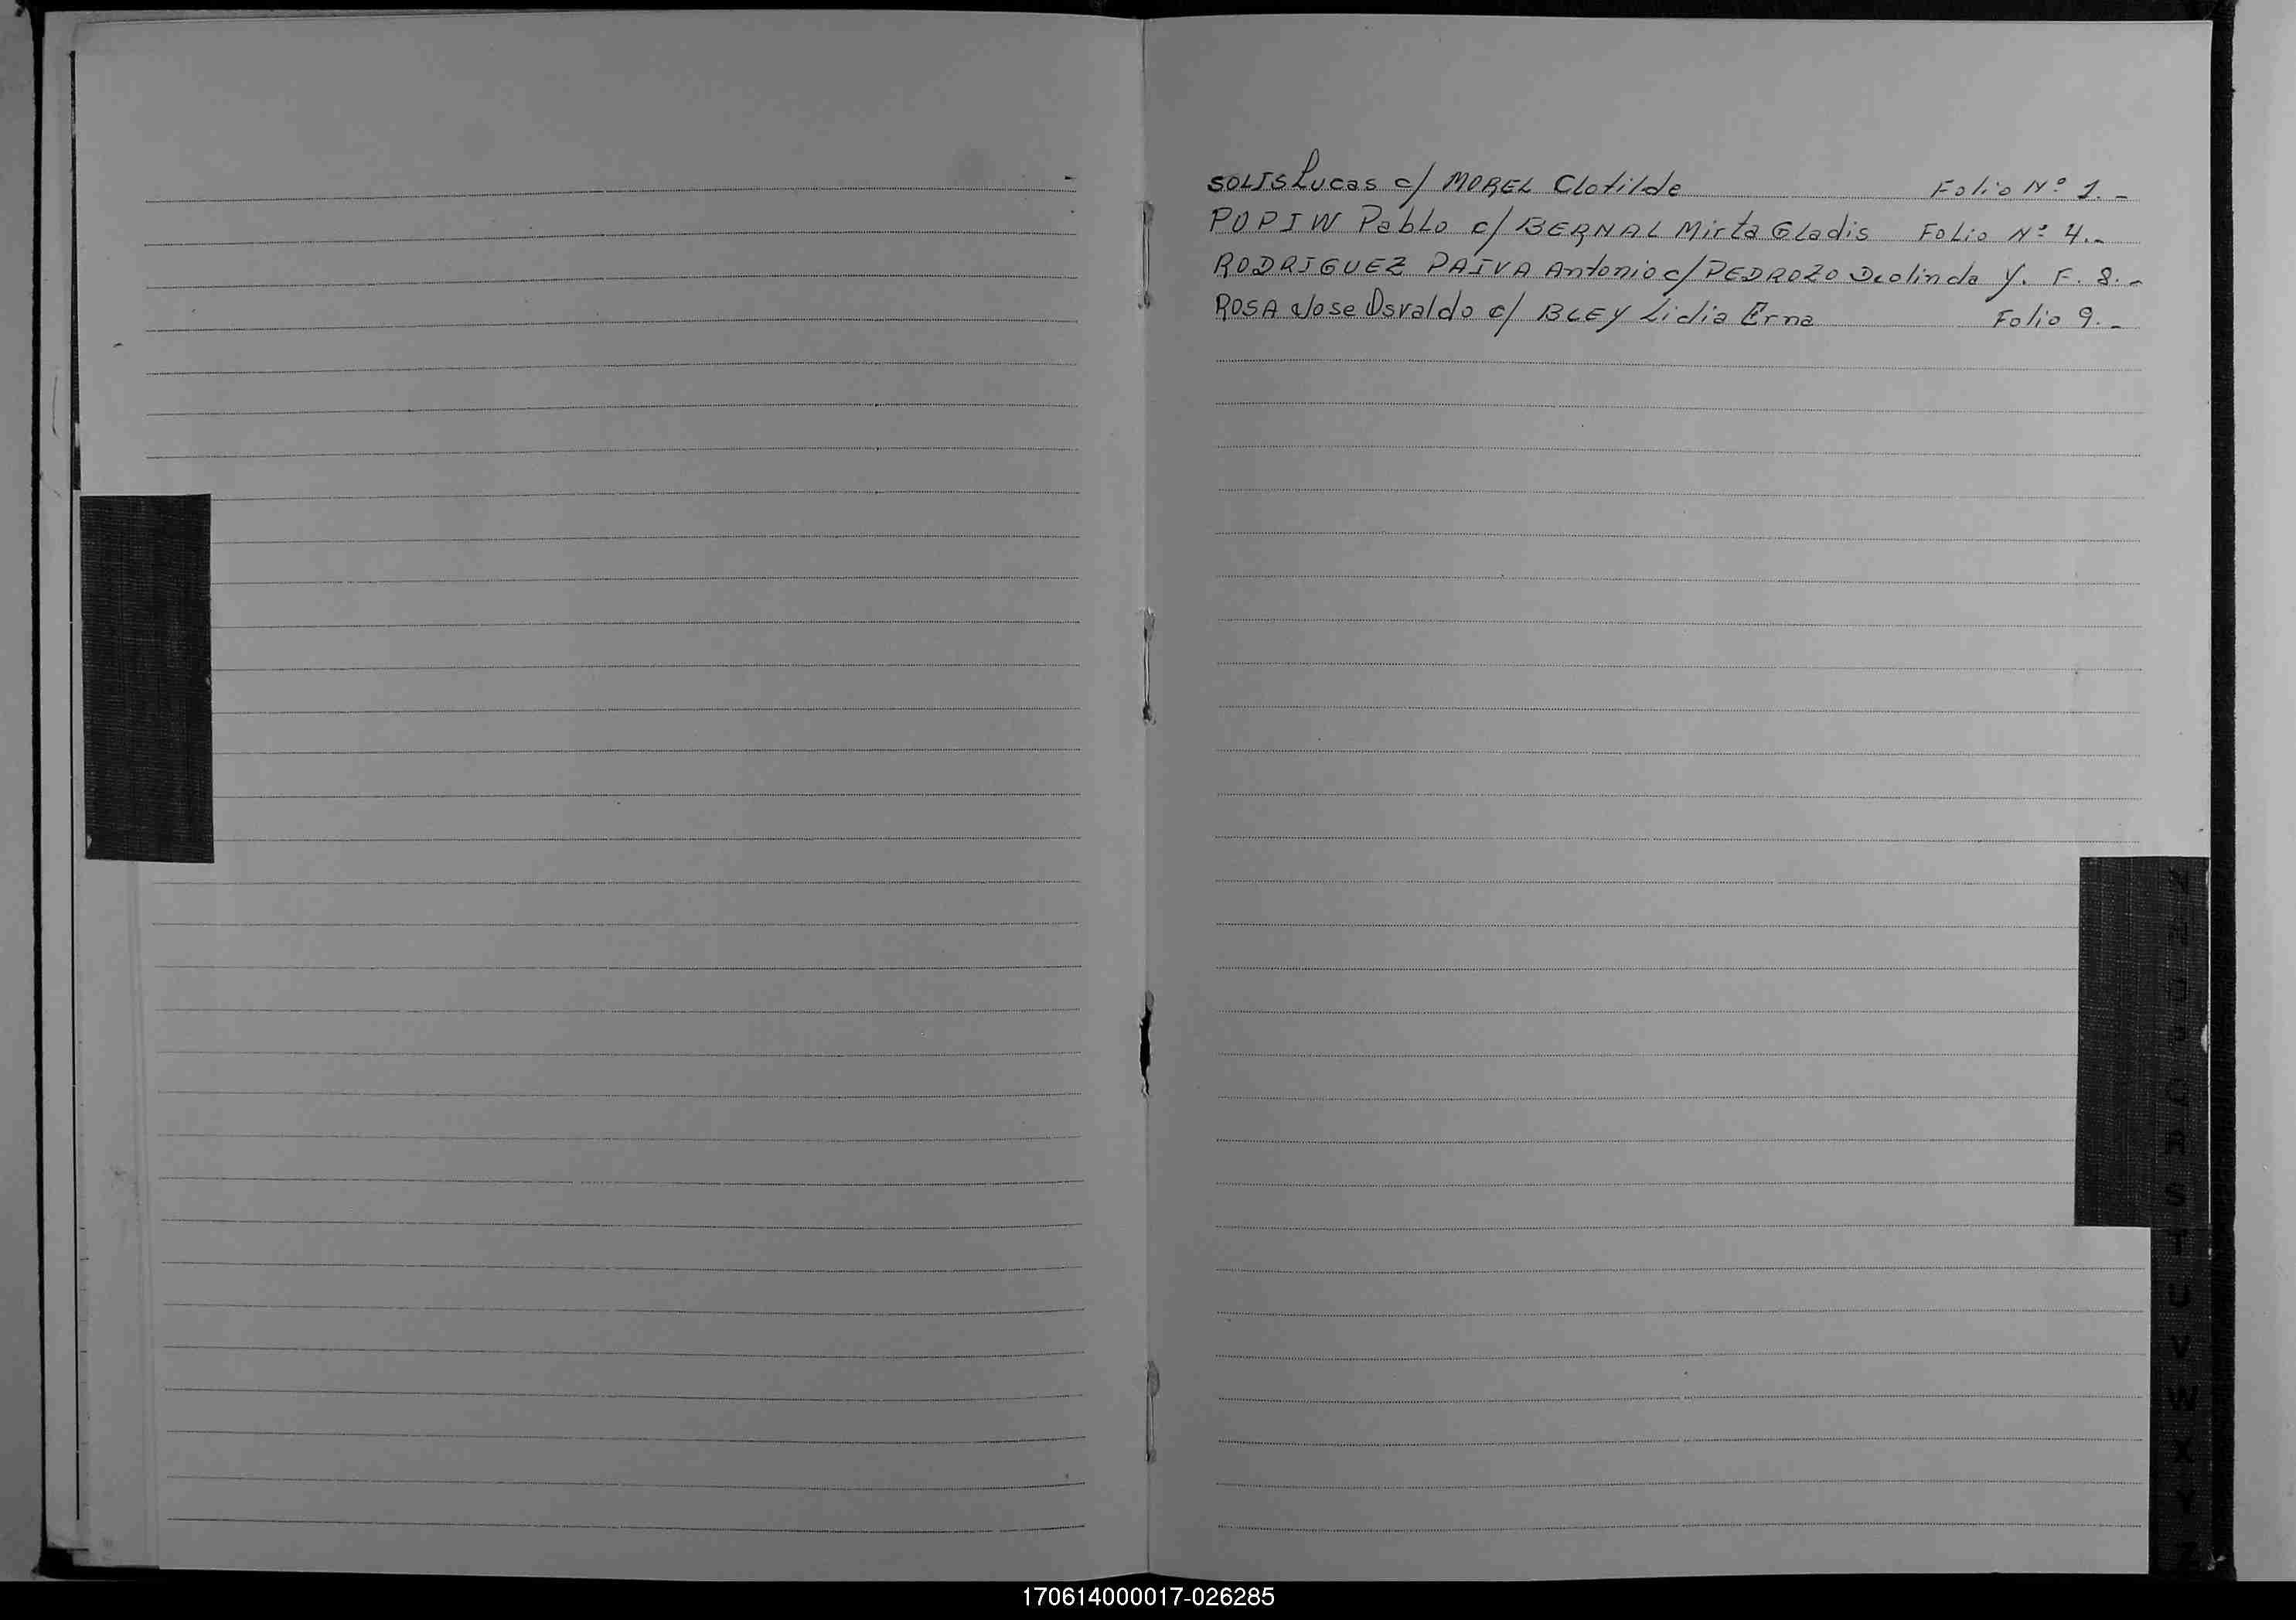 SOLIS Lucas c/ MOREL Clotilde Folio Nº 1.-
POPIW Pablo c/ BERNAL Mirta Gladis Folio Nº 4.-
RODRIGUEZ PAIVA Antonio c/ PEDROZO Deolinda Y. F. 8.-
ROSA Jose Osvaldo c/ BLEY Lidia Erna Folio 9.-
S
T
U
V
W
X
Y
Z
170614000017-026285